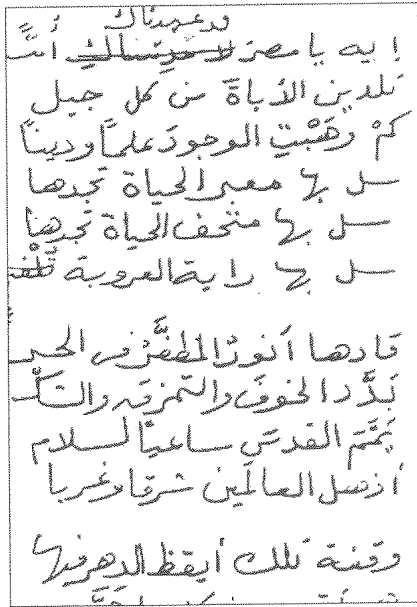 وعهدناك
إيه يا مصر لا حرمناك أنتَ
تلدين الأباةَ من كل جيل
كمْ وهَبْتِ الوجودَ علماً وديناً
سل بها معبر الحياة تجدها
سل بها متحف الحياة تجدها
سل بها راية العروبة
قادها أنورُ المظفَّرُ في
بَدَّد الخوفَ والتمزقَ
يَمَّمَ القدسَ ساعياً لسلام
أذهل العالمين شرقا وغربا
وقفة تلك أيقظ الدهر فيها